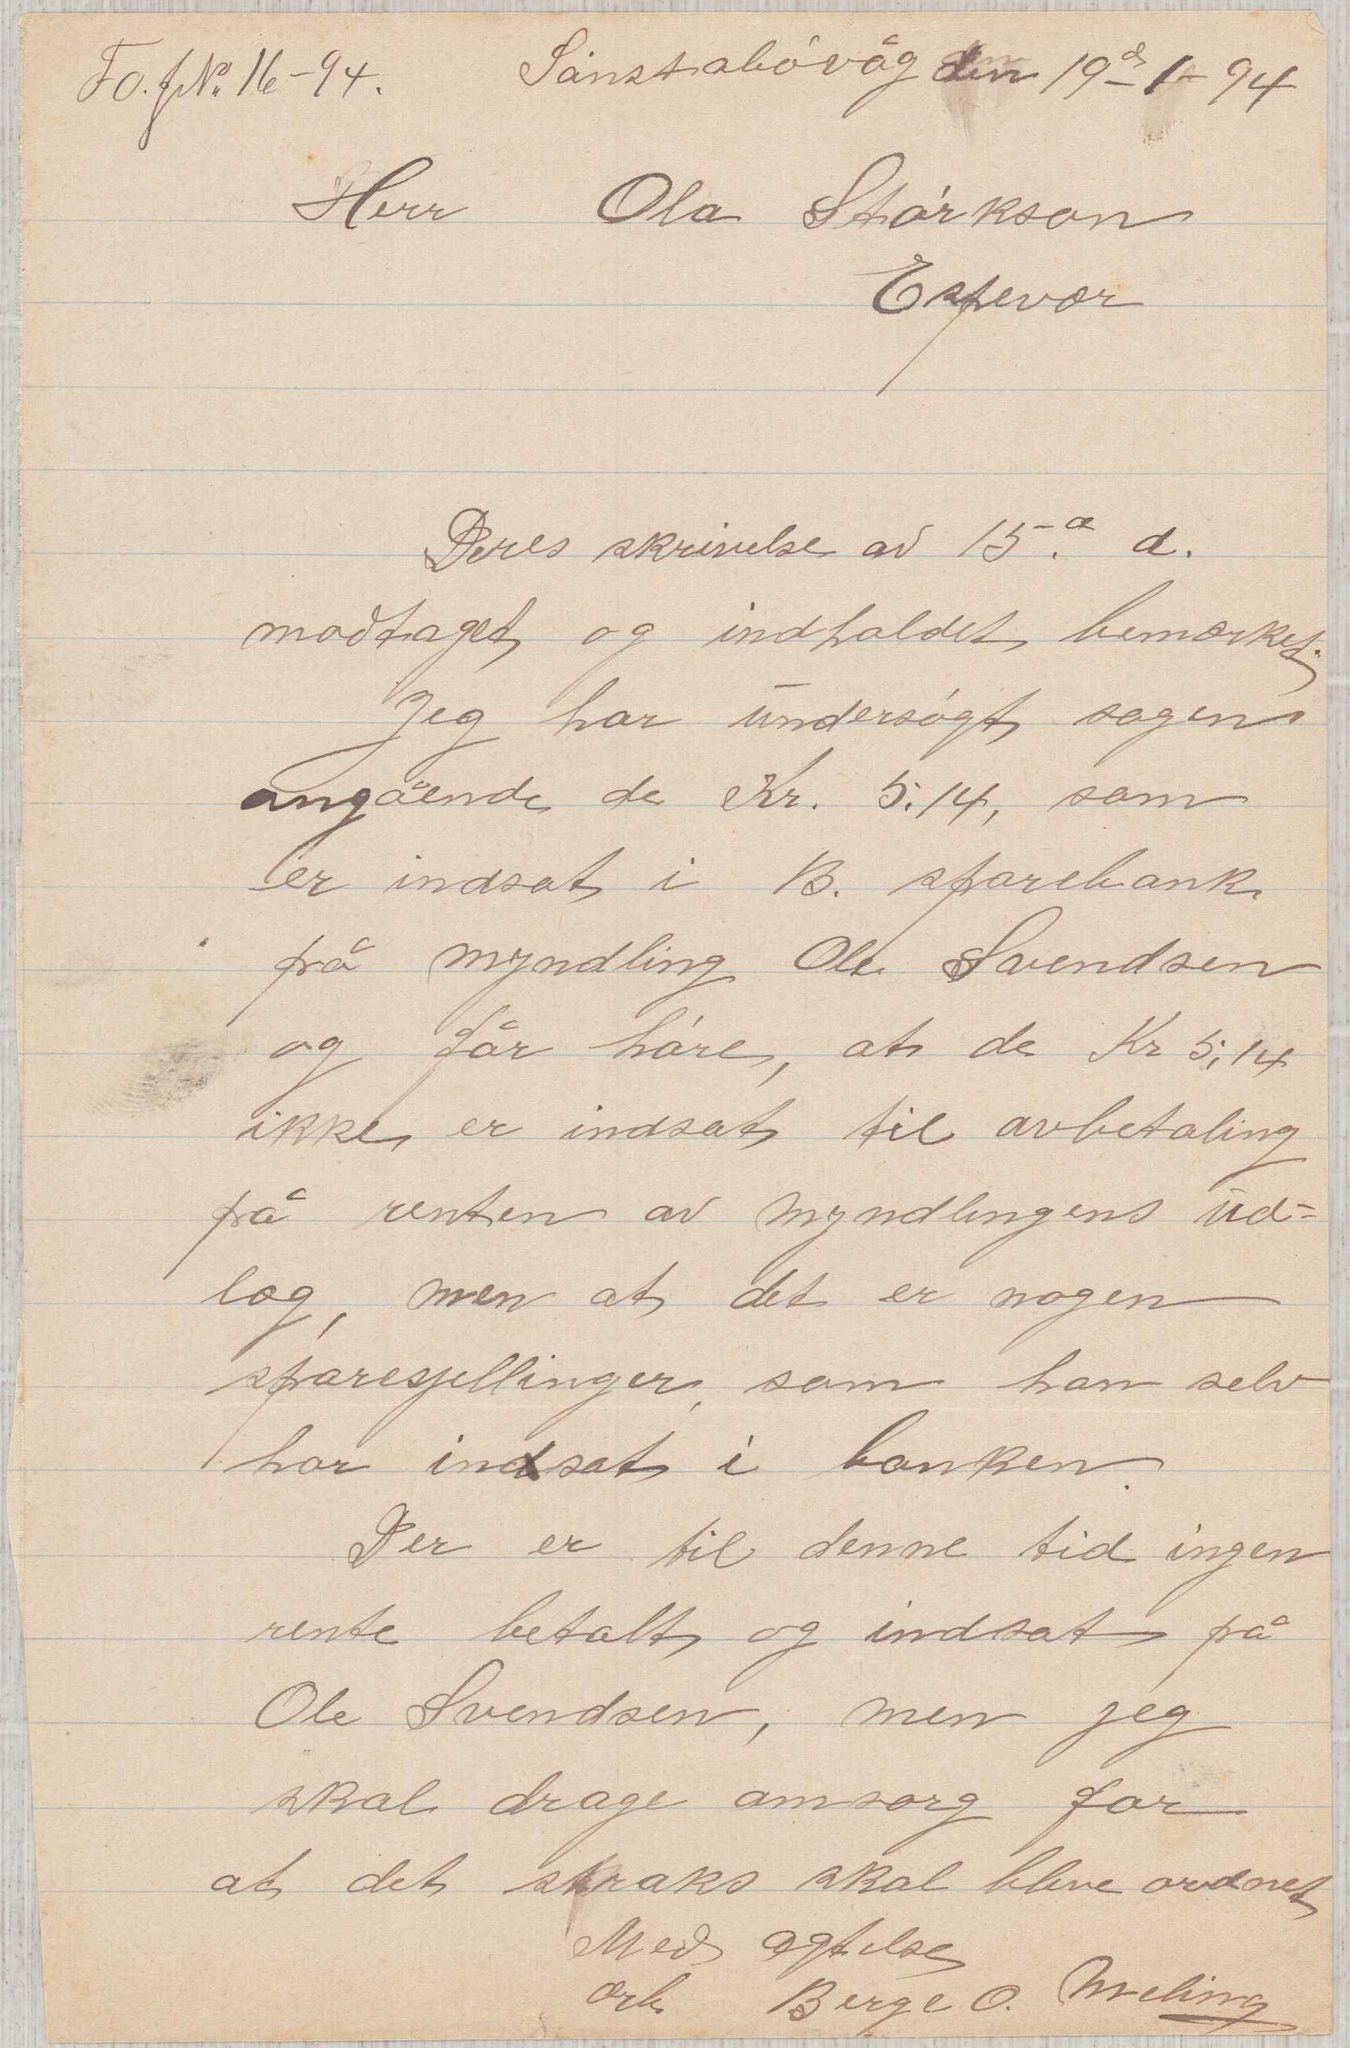 Fo. f No. 16-94. Sønstabøvåg den 19de 1 - 94
Herr Ola Størkson
Espevær
Deres skrivelse av 15.de d.
modtaget og indholdet bemærket.
Jeg har undersøgt sagen
angående de Kr. 5.14, som
er indsat i B. sparebank
på myndling Ole Svendsen
og får høre, at de Kr 5,14
ikke er indsat til avbetaling
på renten av myndlingens ud=
læg, men at det er nogen
sparesjellinger, som han selv
har indsat i banken.
Der er til denne tid ingen
rente betalt og indsat på
Ole Svendsen, men jeg
skal drage omsorg for
at det straks skal blive ordnet
Med agtelse
ærb. Berge O. Meling